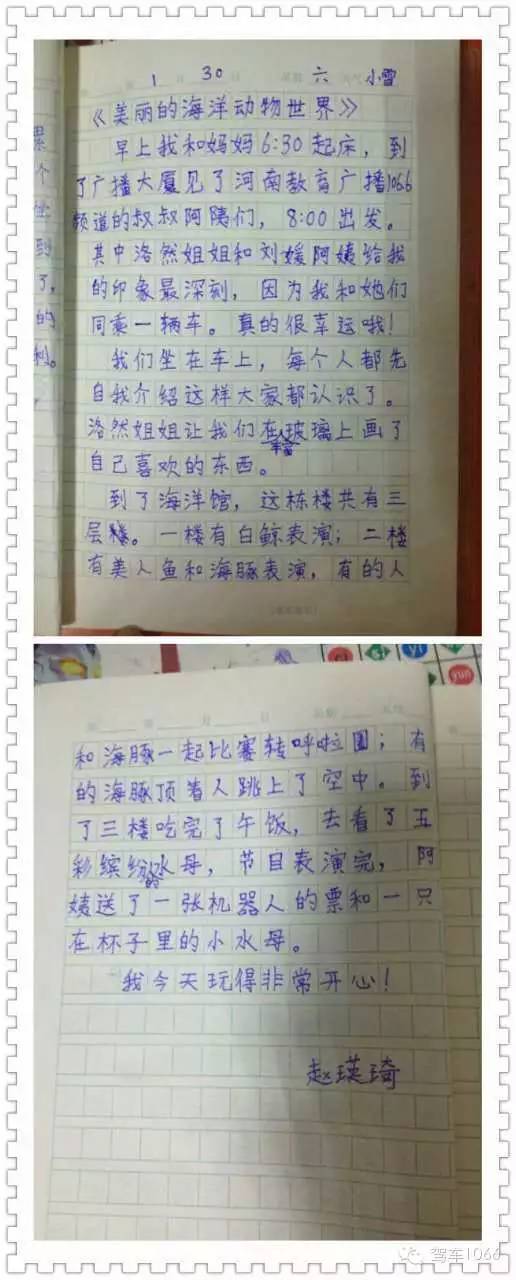 1 30 六 小雪
《美丽的海洋动物世界》
早上我和妈妈6:30起床，到
了广播大厦见了河南教育广播106.6
频道的叔叔阿姨们，8:00出发。
其中洛然姐姐和刘媛阿姨给我
的印象最深刻，因为我和她们
同乘一辆车。真的很幸运哦！
我们坐在车上，每个人都先
自我介绍这样大家都认识了。
洛然姐姐让我们在车窗玻璃上画了
自己喜欢的东西。
到了海洋馆，这栋楼共有三
层楼。一楼有白鲸表演；二楼
有美人鱼和海豚表演，有的人
和海豚一起比赛转呼啦圈；有
的海豚顶着人跳上了空中。到
了三楼吃完了午饭，去看了五
彩缤纷的水母，节目表演完，阿
姨送了一张机器人的票和一只
在杯子里的小水母。
我今天玩得非常开心！
赵瑛琦
驾车1066